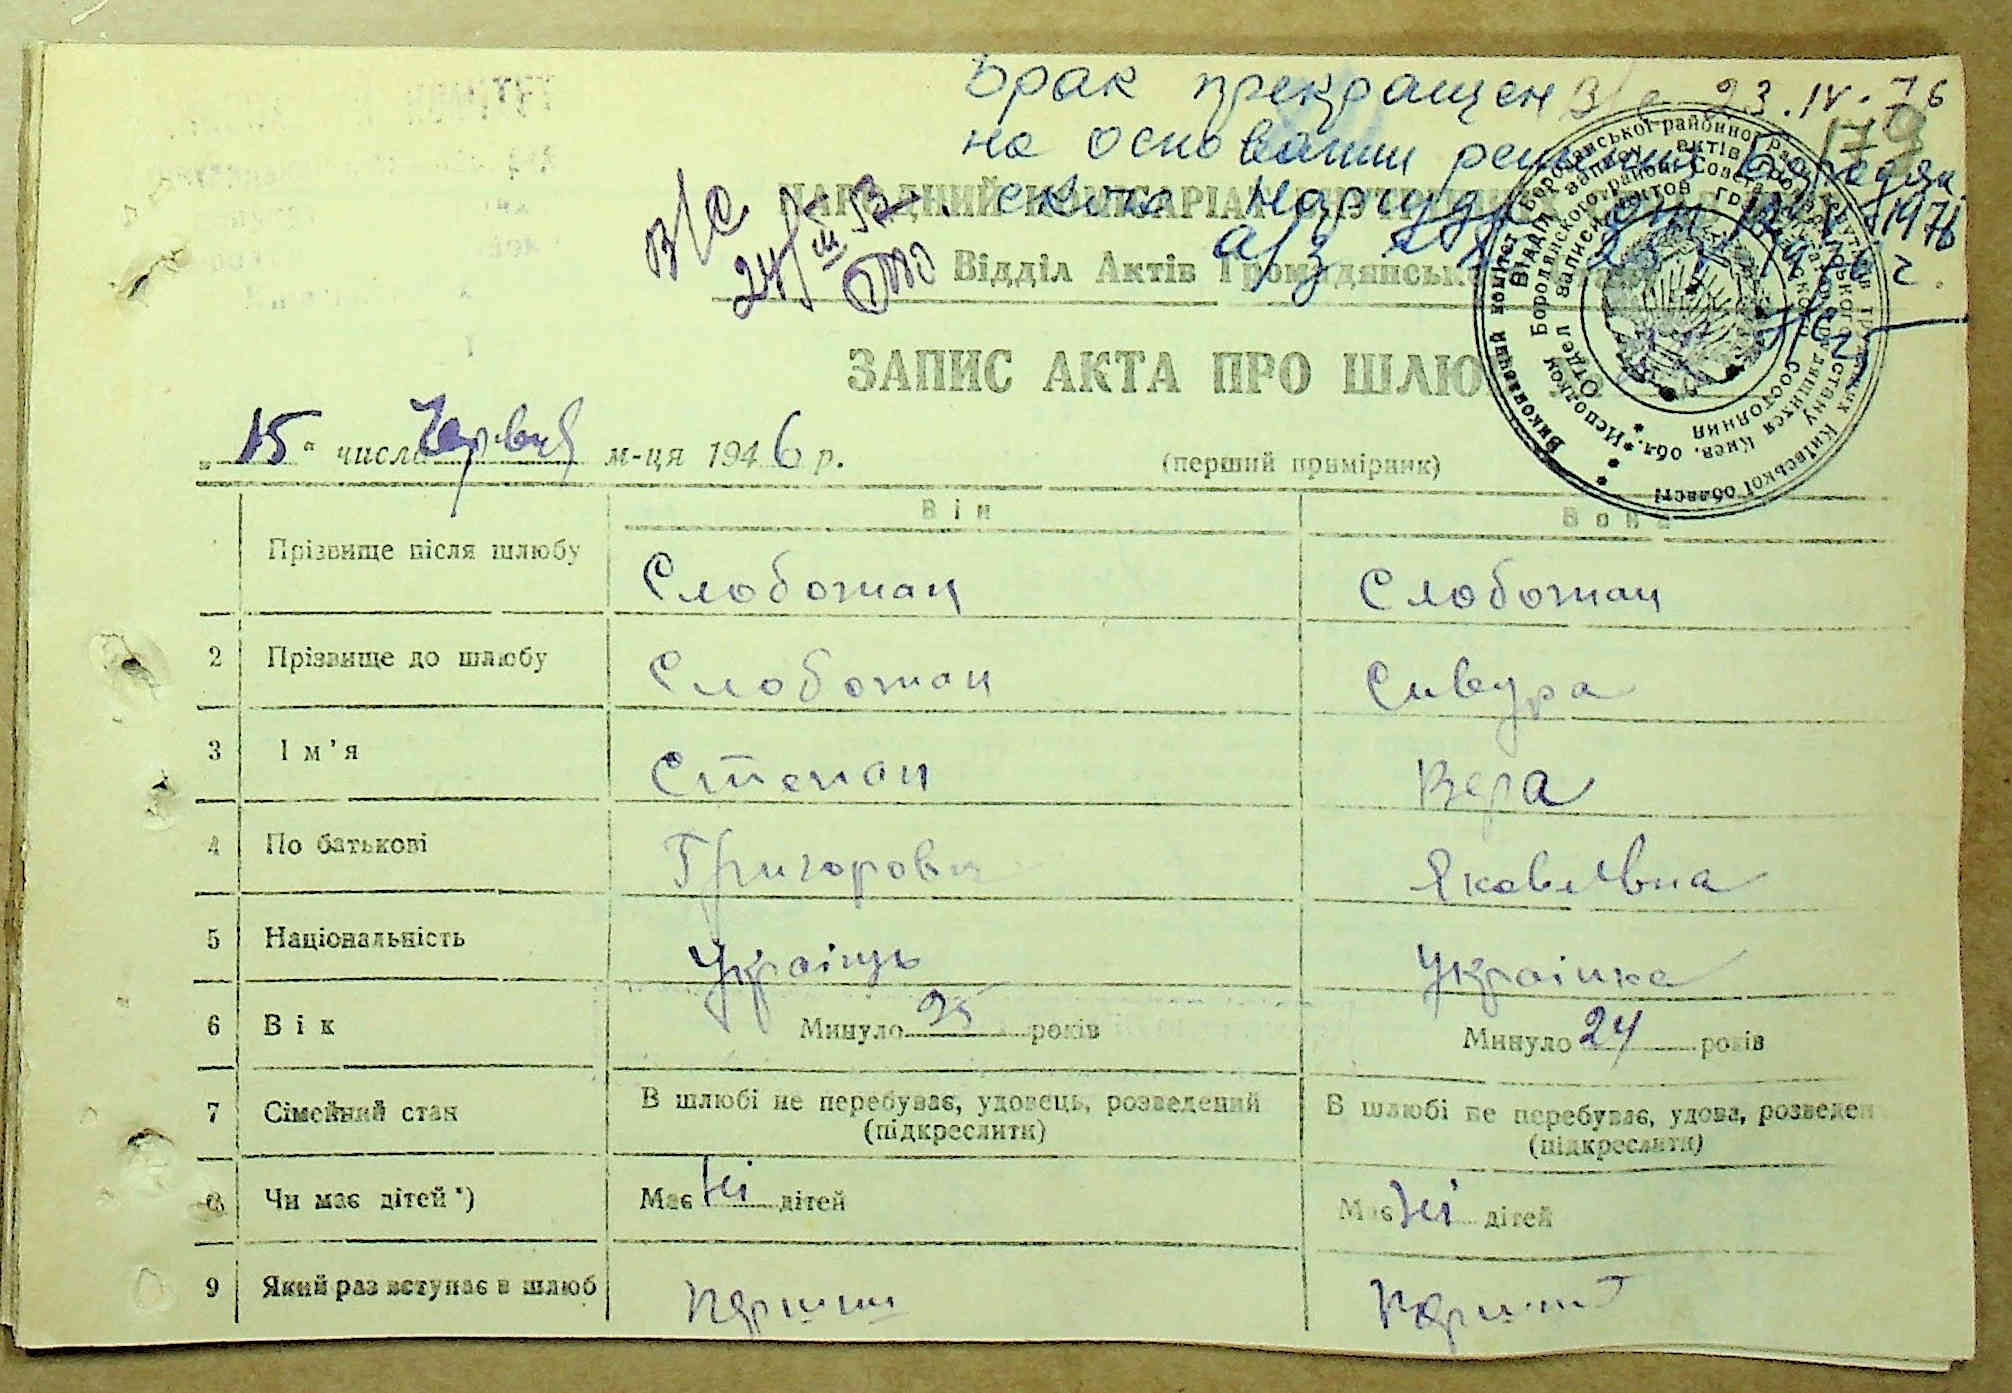 Брак прекращен В/с 23.IV.76
на основании решения Бородян
179
ского Нарсуда от 1976
НАРОДНИЙ КОМІСАРІАТ ВНУТРІШНІХ
В/С
24/III 53
а/з 1976 г.
Відділ Актів Громадянського Стану
ЗАПИС АКТА ПРО ШЛЮБ
„15“ числа Червня м-ця 1946 р.
(перший примірник)
Виконавчий комітет Бородянської районної Ради депутатів трудящих Київської області
Відділ запису актів громадянського стану
Исполком Бородянского район. Совета депутатов трудящихся Киев. обл.
Отдел записи актов гражданского состояния
Він Вона
Прізвище після шлюбу Слобожан Слобожан
2 Прізвище до шлюбу Слобожан Сивура
3 Ім'я Степан Вера
4 По батькові Григорович Яковлевна
5 Національність Українць Українка
6 Вік Минуло 25 років Минуло 24 років
7 Сімейний стан В шлюбі не перебував, удовець, розведений В шлюбі не перебуває, удова, розведен
(підкреслити) (підкреслити)
8 Чи має дітей*) Має ні дітей Має ні дітей
9 Який раз вступає в шлюб перший перший